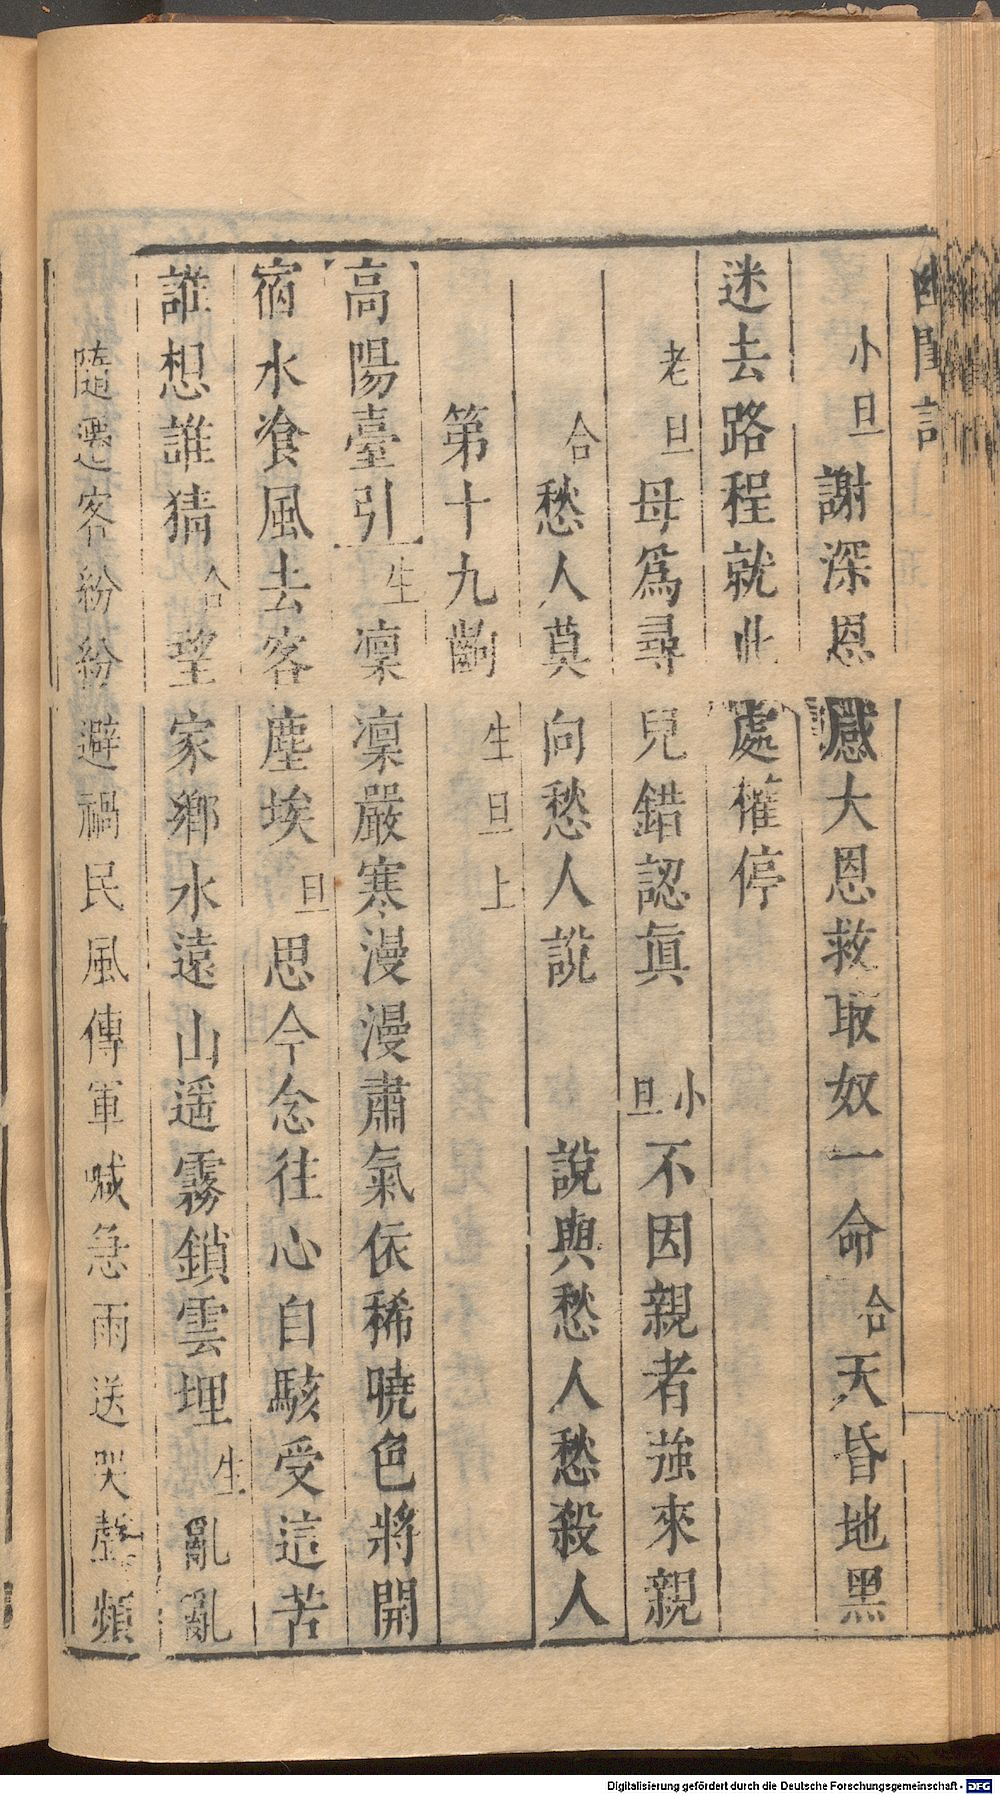 幽閨記 上
小旦 謝深恩感大恩救取奴一命合天昏地黑
迷去路程就此處權停
老旦 母爲尋兒錯認眞 小旦 不因親者強來親
合 愁人莫向愁人說 說與愁人愁殺人
第十九齣 生旦上
高陽臺引 生 凜凜嚴寒漫漫肅氣依稀曉色將開
宿水飡風去客塵埃 旦 思今念往心自駭受這苦
誰想誰猜 合 望家鄉水遠山遥霧鎖雲埋 生 亂亂
隨遷客紛紛避禍民風傳軍喊急雨送哭聲頻
Digitalisierung gefördert durch die Deutsche Forschungsgemeinschaft - DFG